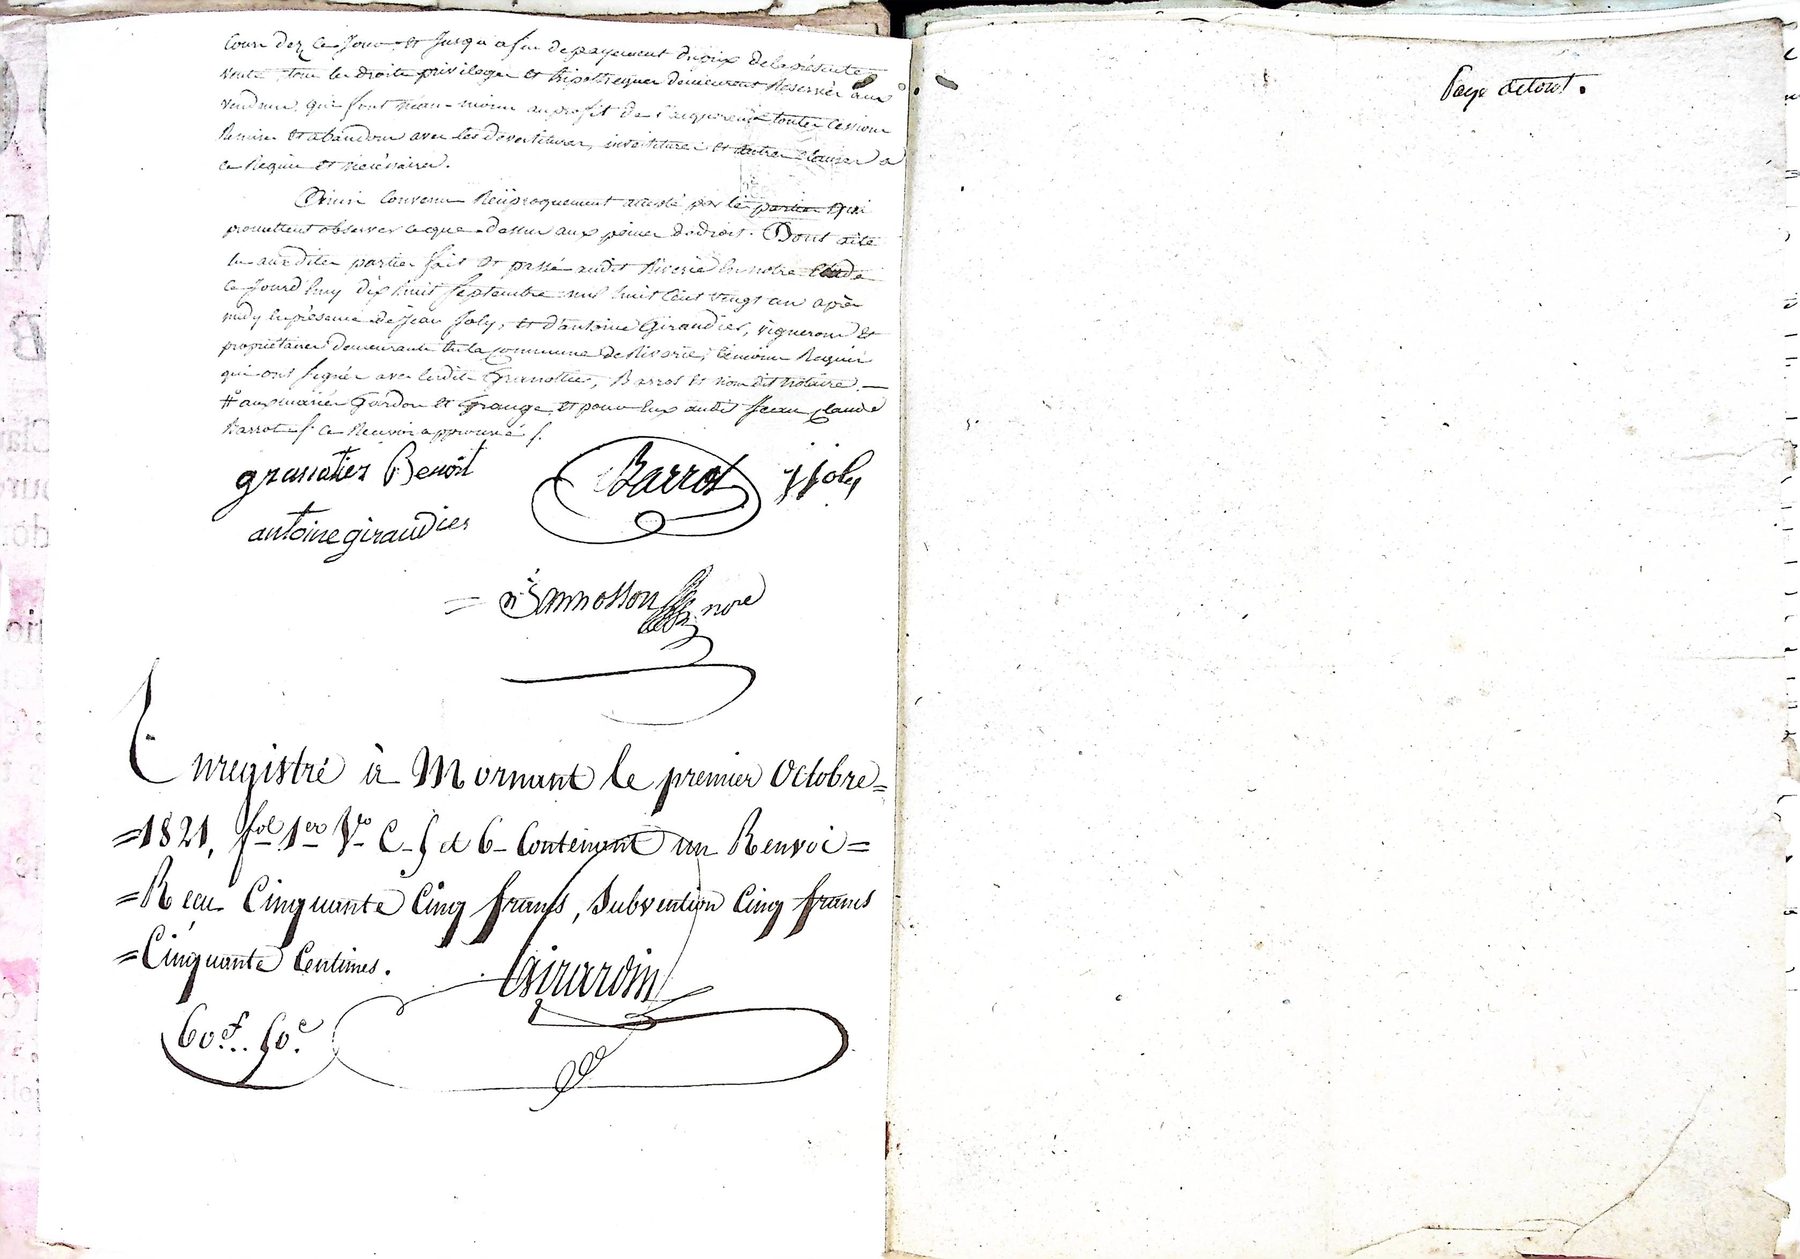 cour dez ce jour et jusqu'a fin de payement du prix de la présente
vente, tous les droits privileges et hipotheques demeurent Reservés aux
vendeurs qui font néan-moins au profit de l'aquereur toutes cessions
Remises et abandons avec les devestitures, investitures et autres clauses a
ce Requises et nécéssaires.
Ainsi convenu Réciproquement accepté par les parties qui
promettent observer ce que dessus aux peines de droit. Dont acte
lu auxdites parties fait et passé audit Riverie en notre Etude
ce jourd'huy dix huit septembre mil huit cent vingt un après
midy en présence de Jean Joly, et d'antoine Giraudier, vignerons et
propriétaires demeurants en la commune de Riverie, témoins Requis
qui ont signés avec lesdits Granottier, Barrot et nous dit notaire. —
# aux mariés Gardon et Grange, et pour Eux audit Jean Claude
Barrot /. ce Renvoi approuvé /.
granotier Benoit Barrot j joly
antoine giraudier
= nore
Enregistré à Mornant le premier Octobre =
= 1821, fol 1er Vo C. 5 et 6 - Contenant un Renvoi =
= Reçu Cinquante Cinq francs, Subvention Cinq francs
= Cinquante Centimes. Girardin
60f.. 50c.